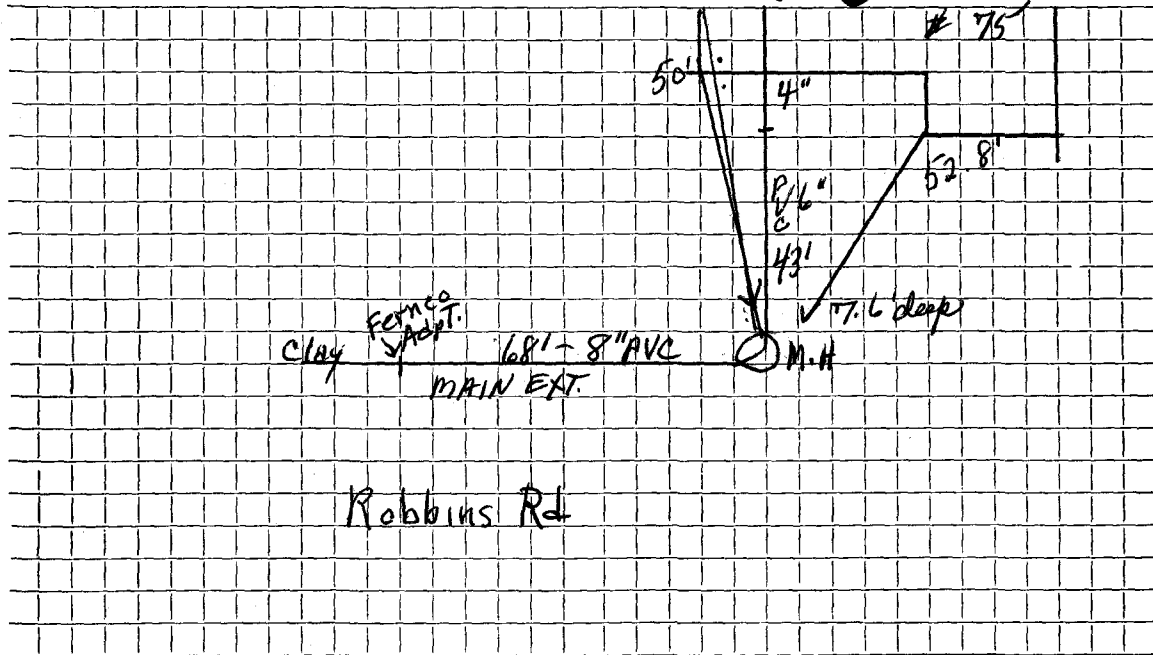 # 75
50'
4"
52.8'
PVC 6"
43'
7.6' deep
Fernco
Adpt.
Clay
68' - 8" PVC
M.H
MAIN EXT.
Robbins Rd